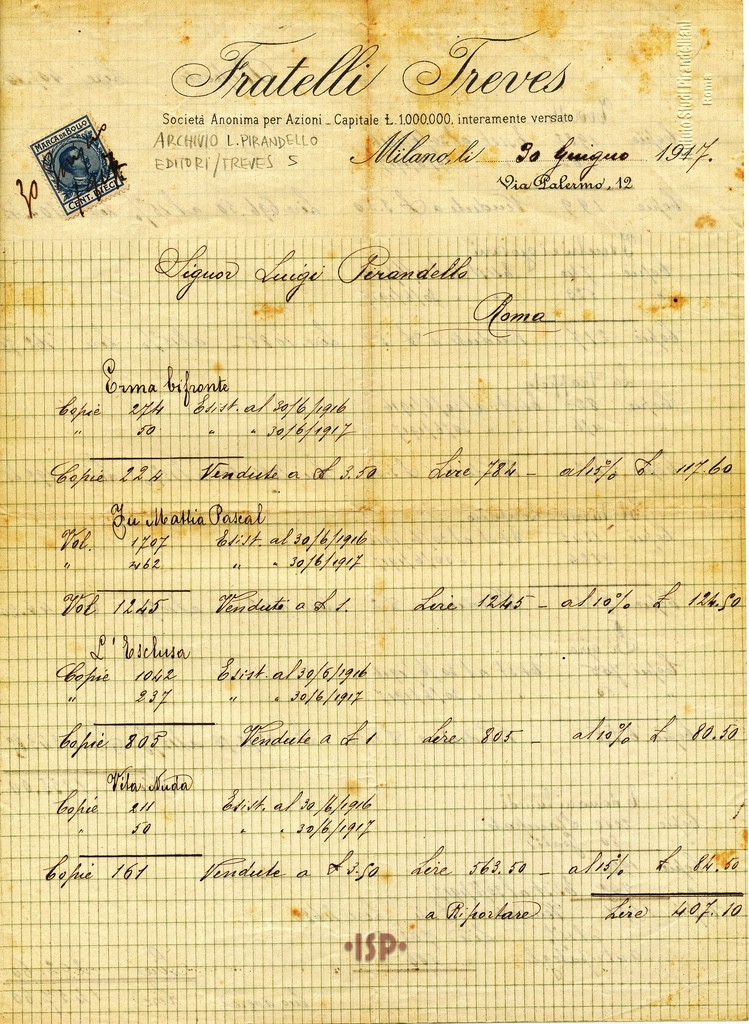 Fratelli Treves
Società Anonima per Azioni _ Capitale Ł.1.000,000, interamente versato
MARCA DA BOLLO
CENT. DIECI
30
ARCHIVIO L. PIRANDELLO
EDITORI/TREVES 5
Milano, li 30 Giugno 1917.
Via Palermo, 12
Studi Pirandelliani
Roma
Signor Luigi Pirandello
Roma
Erma bifronte
Copie 274 Esist. al 30/6/1916
" 50 " " 30/6/1917
Copie 224 Vendute a £ 3.50 Lire 784 – al 15% £. 117.60
Fu Mattia Pascal
Vol. 1707 Esist. al 30/6/1916
" 462 " " 30/6/1917
Vol 1245 Vendute a £ 1. Lire 1245 – al 10% £ 124.50
L' Esclusa
Copie 1042 Esist. al 30/6/1916
" 237 " " 30/6/1917
Copie 805 Vendute a £ 1 Lire 805. – al 10% £ 80.50
Vita Nuda
Copie 211 Esist. al 30/6/1916
" 50 " " 30/6/1917
Copie 161 Vendute a £ 3.50 Lire 563.50 – al 15% £ 84.50
a Riportare Lire 407.10
•ISP•